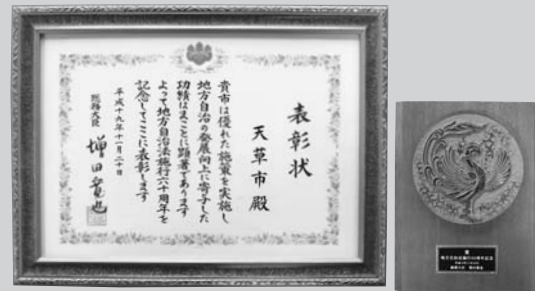 表彰状
天草市殿
貴市は優れた施策を実施し
地方自治の発展向上に寄与した
功績はまことに顕著であります
よって地方自治法施行六十周年を
記念してここに表彰します
平成十九年十一月二十日
総務大臣 増田寛也